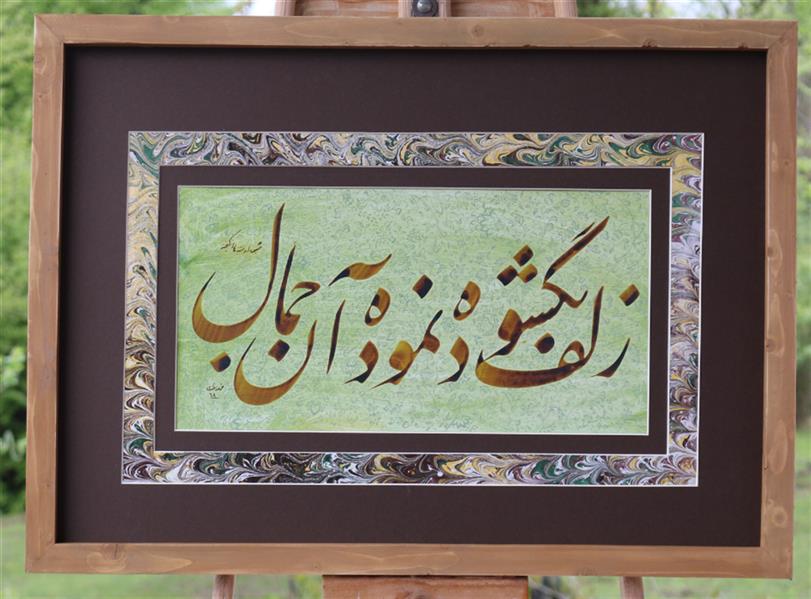 زلف بگشوده نموده آن جمال